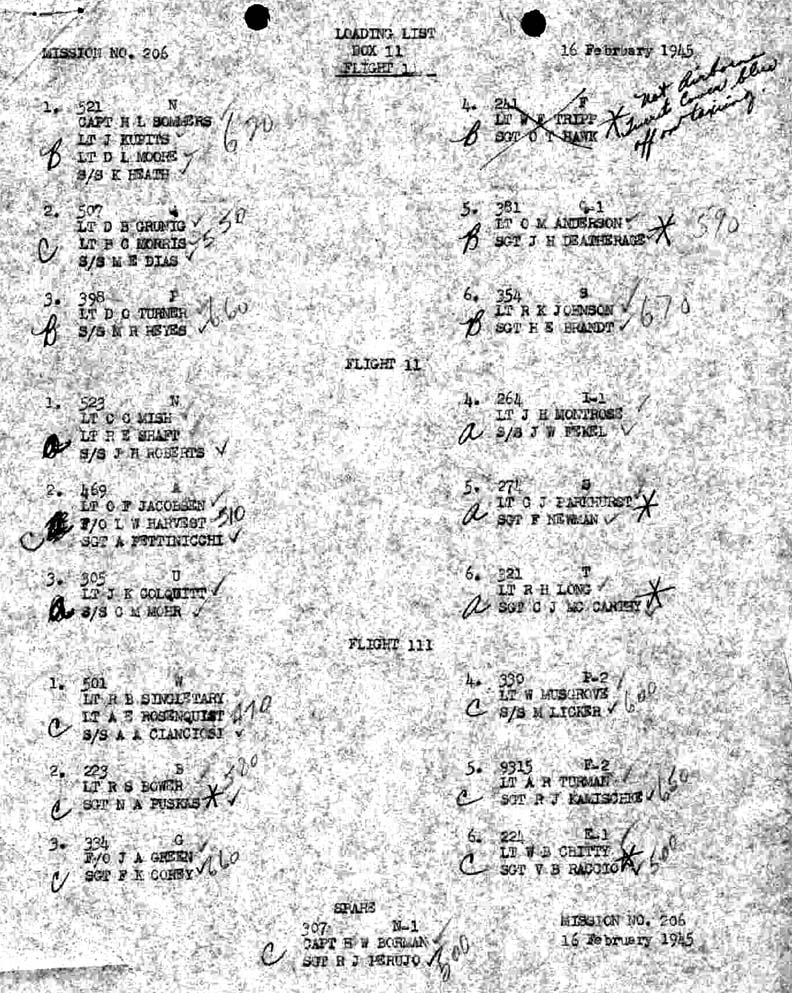 LOADING LIST
MISSION NO. 206
BOX 11
16 February 1945
FLIGHT 1
1. 521 N
CAPT H L SOMMERS 670
LT J KUPITS
B LT D L MOORE
S/S K HEATH
2. 507
LT D B GRUNIG 530
C LT B C MORRIS
S/S M E DIAS
3. 398 P
LT D G TURNER 660
B S/S M R REYES
4. 241 F
LT W F TRIPP
B SGT O T HAWK
Not Airborne
Turret Cover blew
off on taxiing.
5. 381 G-1
LT O M ANDERSON
B SGT J H DEATHERAGE 590
6. 354 S
LT R K JOHNSON 670
B SGT H E BRANDT
FLIGHT 11
1. 523 N
LT C C MISH
LT R E SHAFT
a S/S J H ROBERTS
2. 469 A
LT O F JACOBSEN
F/O L W HARVEST 510
C SGT A PETTINICCHI
3. 305 U
LT J K COLQUITT
a S/S C M MOHR
4. 264 I-1
LT J H MONTROSE
a S/S J W FEKEL
5. 274 S
LT C J PARKHURST
a SGT F NEWMAN
6. 321 T
LT R H LONG
a SGT C J MC CARTHY
FLIGHT 111
1. 501 W
LT R B SINGLETARY
LT A E ROSENQUIST
C S/S A A CIANCIOSI
2. 223 B
LT R S BOWER 580
C SGT N A PUSKAS
3. 334 G
F/O J A GREEN
C SGT F K COREY 660
4. 339 P-2
LT W MUSGROVE 600
C S/S M LICKER
5. 9315 F-2
LT A R TURMAN 650
C SGT R J KAMISCHKE
6. 224 E-1
LT W B CHITTY
C SGT V B RACCIO 500
SPARE
307 N-1
CAPT H W BORMAN
C SGT R J PERUJO 500
MISSION NO. 206
16 February 1945